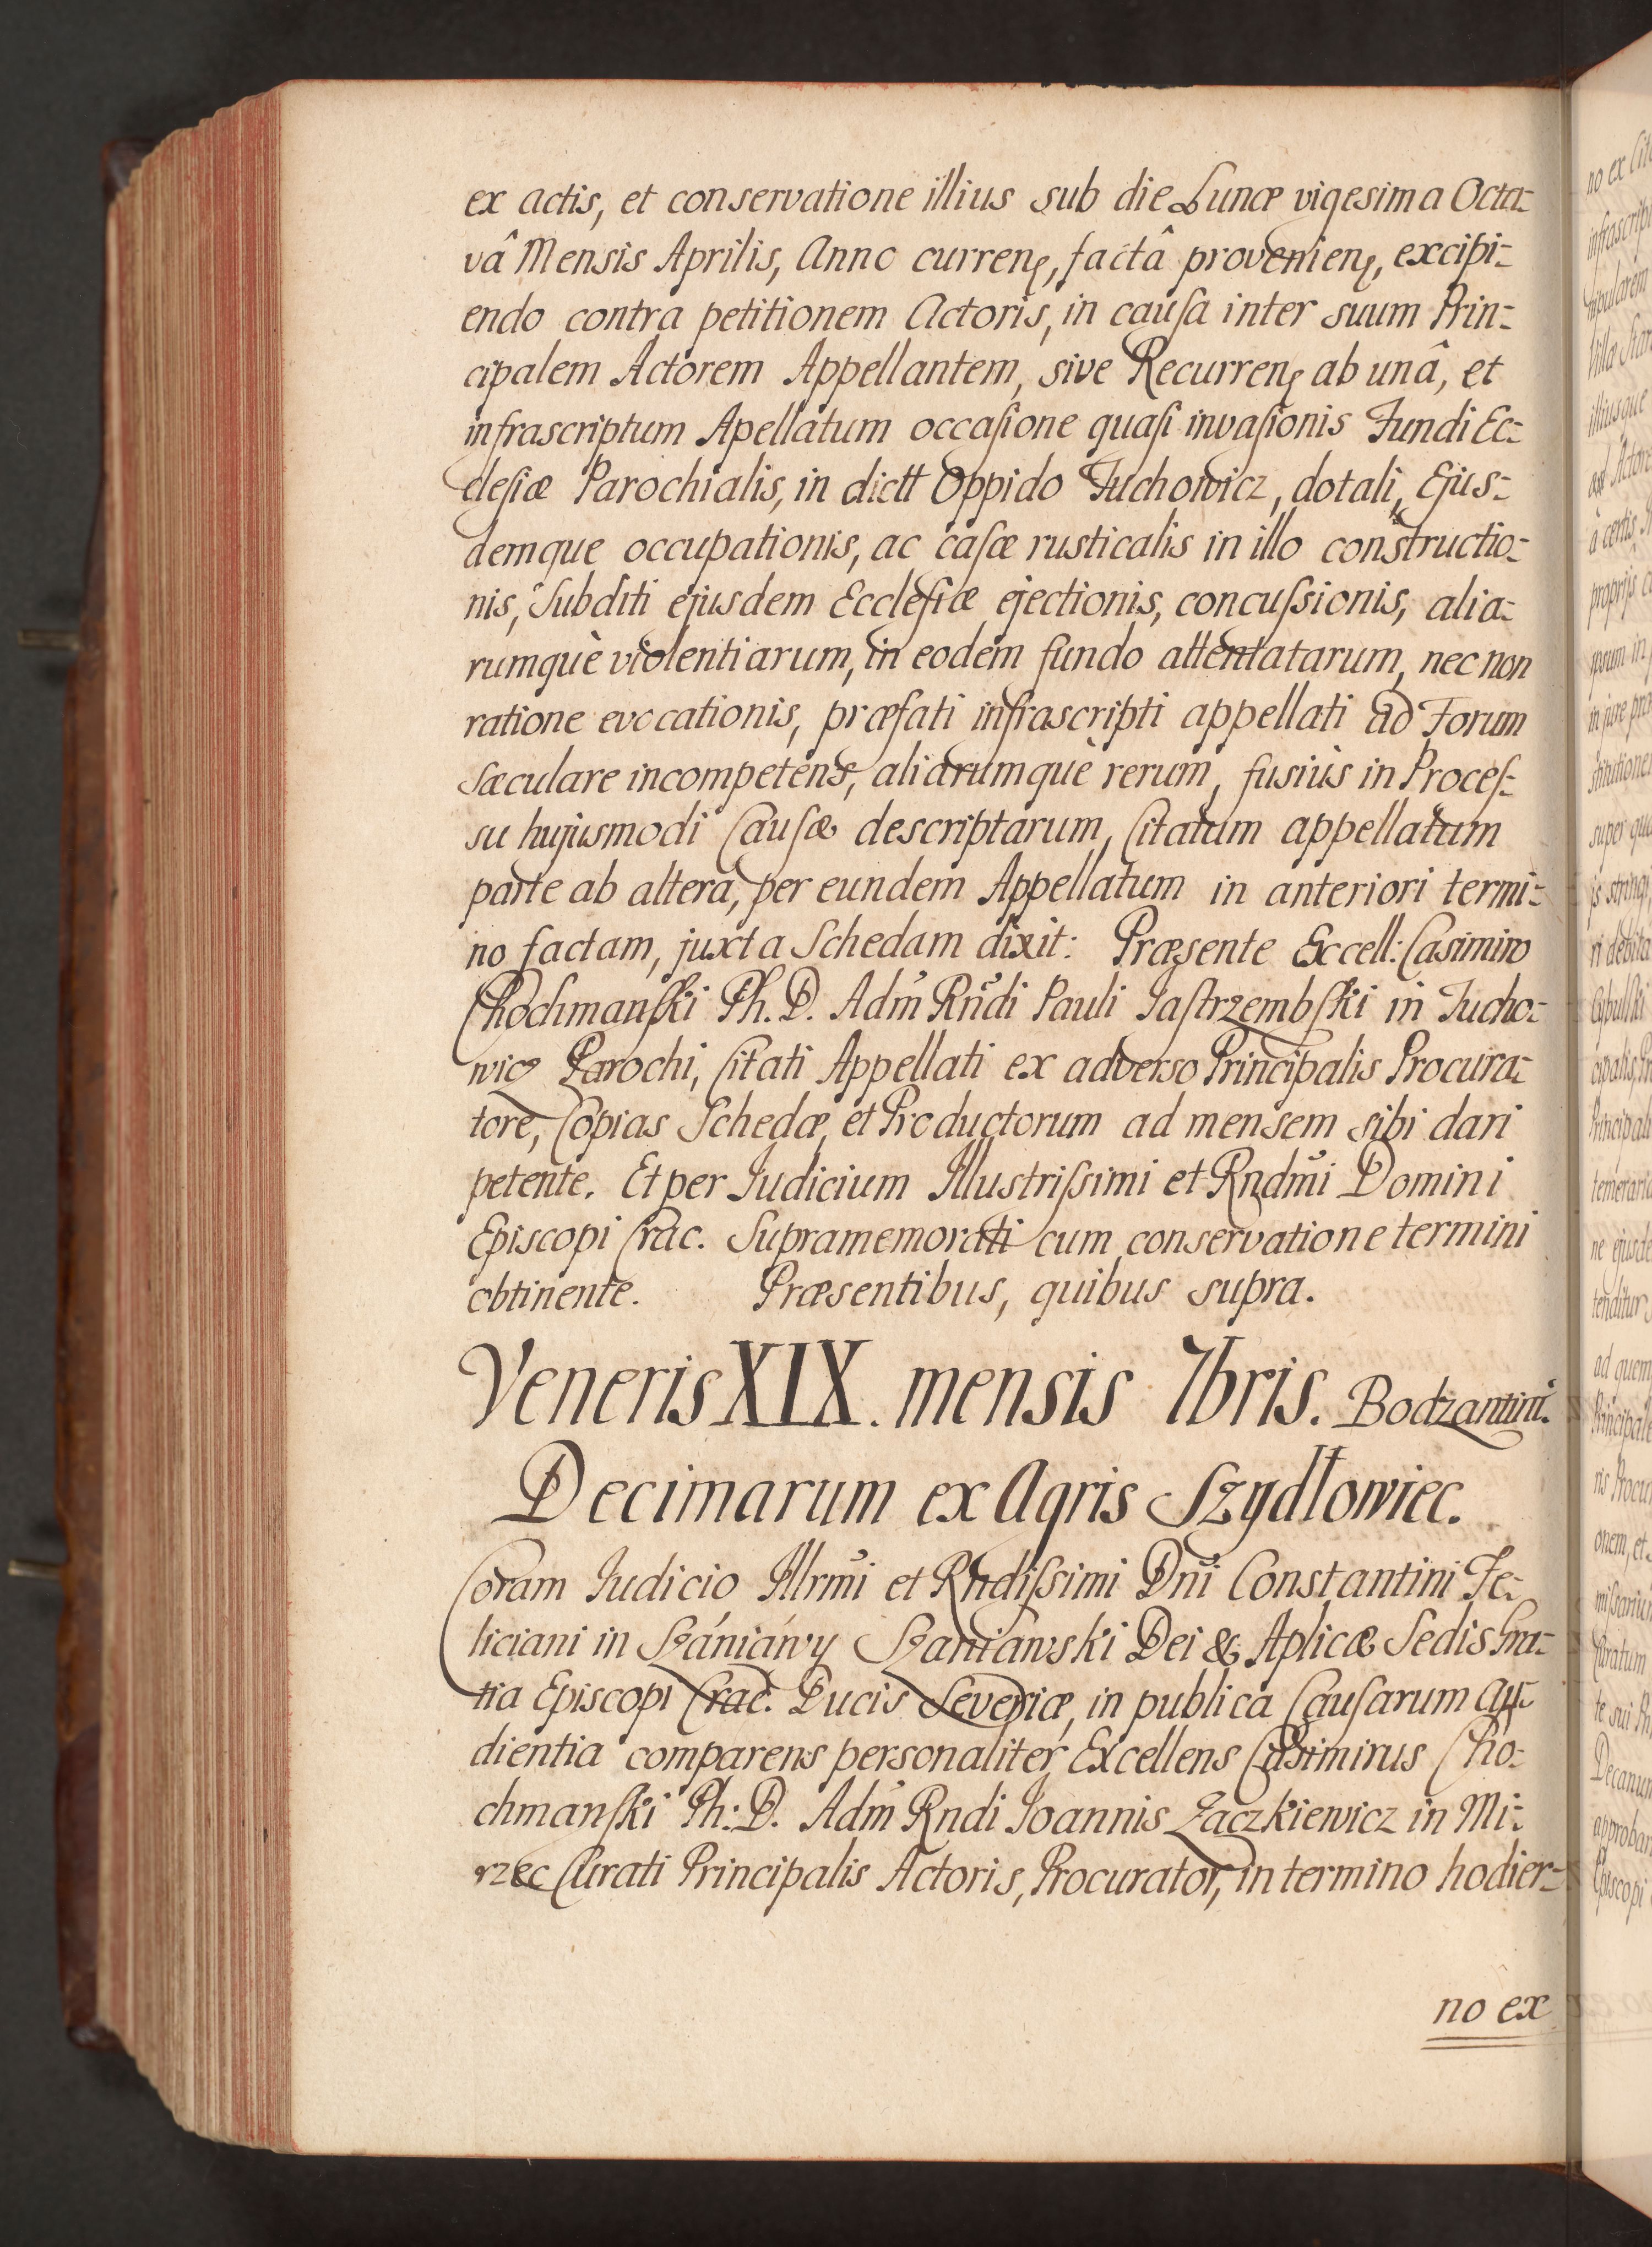 ex actis, et conservatione illius sub die Lunæ vigesima Octa-
vâ Mensis Aprilis, Anno curren, factâ provenien, excipi-
endo contra petitionem Actoris, in causa inter suum Prin-
cipalem Actorem Appellantem, sive Recurren ab unâ, et
infrascriptum Apellatum occasione quasi invasionis Fundi Ec-
clesiæ Parochialis, in dictt Oppido Tuchowicz, dotali, Ejus-
demque occupationis, ac casæ rusticalis in illo constructio-
nis, Subditi ejusdem Ecclesiæ ejectionis, concussionis, alia-
rumquè violentiarum, in eodem fundo attentatarum, nec non
ratione evocationis, præfati infrascripti appellati ad Forum
Sæculare incompetens, aliarumquè rerum, fusiùs in Proces-
su hujusmodi Causæ descriptarum, Citatum appellatum
parte ab altera, per eundem Appellatum in anteriori termi-
no factam, juxta Schedam dixit: Præsente Excell: Casimiro
Chochmanski Ph. D. Adm Rndi Pauli Jastrzembski in Tucho-
wicz Parochi, Citati Appellati ex adverso Principalis Procura-
tore, Copias Schedæ, et Productorum ad mensem sibi dari
petente. Et per Judicium Illustrissimi et Rndmi Domini
Episcopi Crac. Supramemorati cum conservatione termini
obtinente. Præsentibus, quibus supra.
Veneris XIX. mensis 7bris. Bodzantini.
Decimarum ex Agris Szydłowiec.
Coram Judicio Illrmi et Rndissimi Dni Constantini Fe-
liciani in Szániáwy Szaniawski Dei & Aplicæ Sedis Gra-
tia Episcopi Crac. Ducis Severiæ, in publica Causarum Au-
dientia comparens personaliter Excellens Casimirus Cho-
chmanski Ph: D. Adm Rndi Joannis Zaczkiewicz in Mi-
rzec Curati Principalis Actoris, Procurator, in termino hodier-
no ex